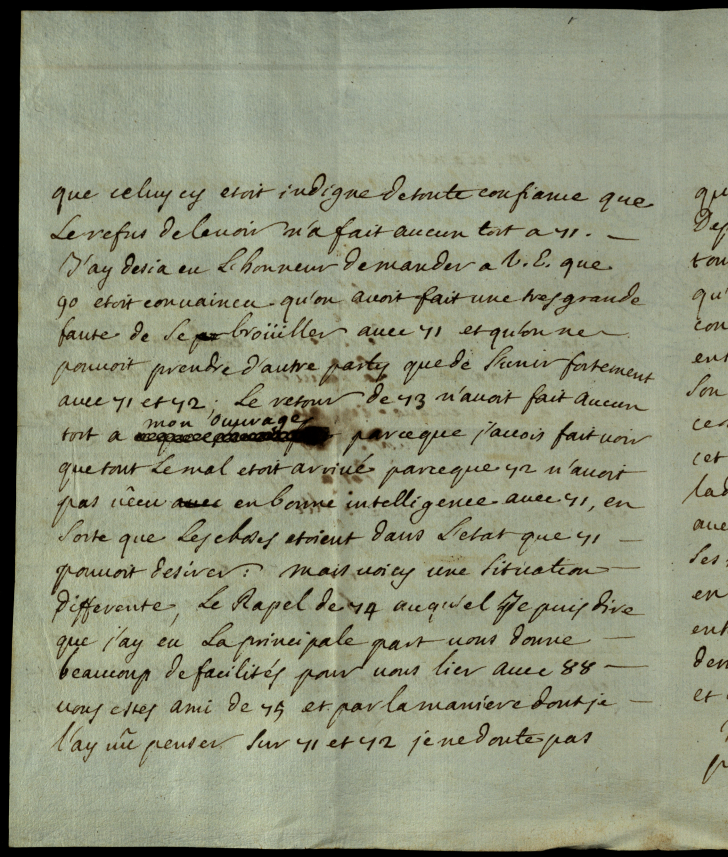 que celuy cy etoit indigne detoute confiance que
Le refus de le voir n'a fait aucun tort a 41. —
J'ay desia eu L'honneur de mander a V. E. que
90 etoit convaincu qu'on avoit fait une tres grande
faute de Se broüiller avec 41 et qu'on ne
pouvoit prendre d'autre party que de S'unir fortement
avec 41 et 42. Le retour de 43 n'avoit fait aucun
tort a mon ouvrage parceque j'avois fait voir
que tout Le mal etoit arrivé parceque 42 n'avoit
pas vêcu avec en bonne intelligence avec 41, en
Sorte que Les choses etoient dans L'etat que 41 —
pouvoit desirer: mais voicy une Situation —
differente, Le Rapel de 44 auquel Je puis dire
que j'ay eu La principale part vous donne —
beaucoup de facilités pour vous lier avec 88 —
vous estes ami de 45 et par la maniere dont je
l'ay vû penser Sur 41 et 42 je ne doute pas